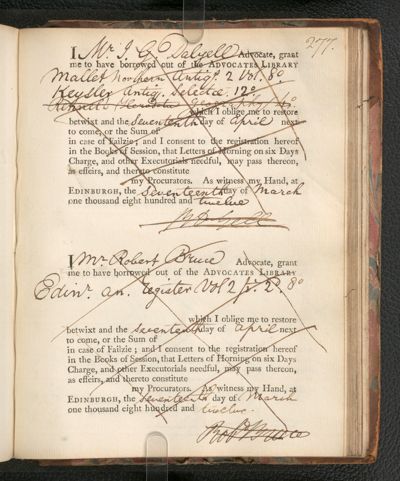 277.
I Mr. J. G. Dalyell Advocate, grant
me to have borrowed out of the ADVOCATES LIBRARY
Mallet Northern Antiqs. 2 Vol. 8o
Keysler Antiq. Selectae. 12o
Rennells Herodotus Geography 4o.
which I oblige me to restore
betwixt and the Seventeenth day of April next
to come, or the Sum of
in case of Failzie; and I consent to the registration hereof
in the Books of Session, that Letters of Horning on six Days
Charge, and other Executorials needful, may pass thereon,
as effeirs, and thereto constitute
my Procurators. As witness my Hand, at
EDINBURGH, the Seventeenth day of March
one thousand eight hundred and twelve
I Mr. Robert Bruce Advocate, grant
me to have borrowed out of the ADVOCATES LIBRARY
Edinr. an. Register Vol 2 8o
which I oblige me to restore
betwixt and the Seventeenth day of April next
to come, or the Sum of
in case of Failzie; and I consent to the registration hereof
in the Books of Session, that Letters of Horning on six Days
Charge, and other Executorials needful, may pass thereon,
as effeirs, and thereto constitute
my Procurators. As witness my Hand, at
EDINBURGH, the Seventeenth day of March
one thousand eight hundred and twelve.
Robt Bruce